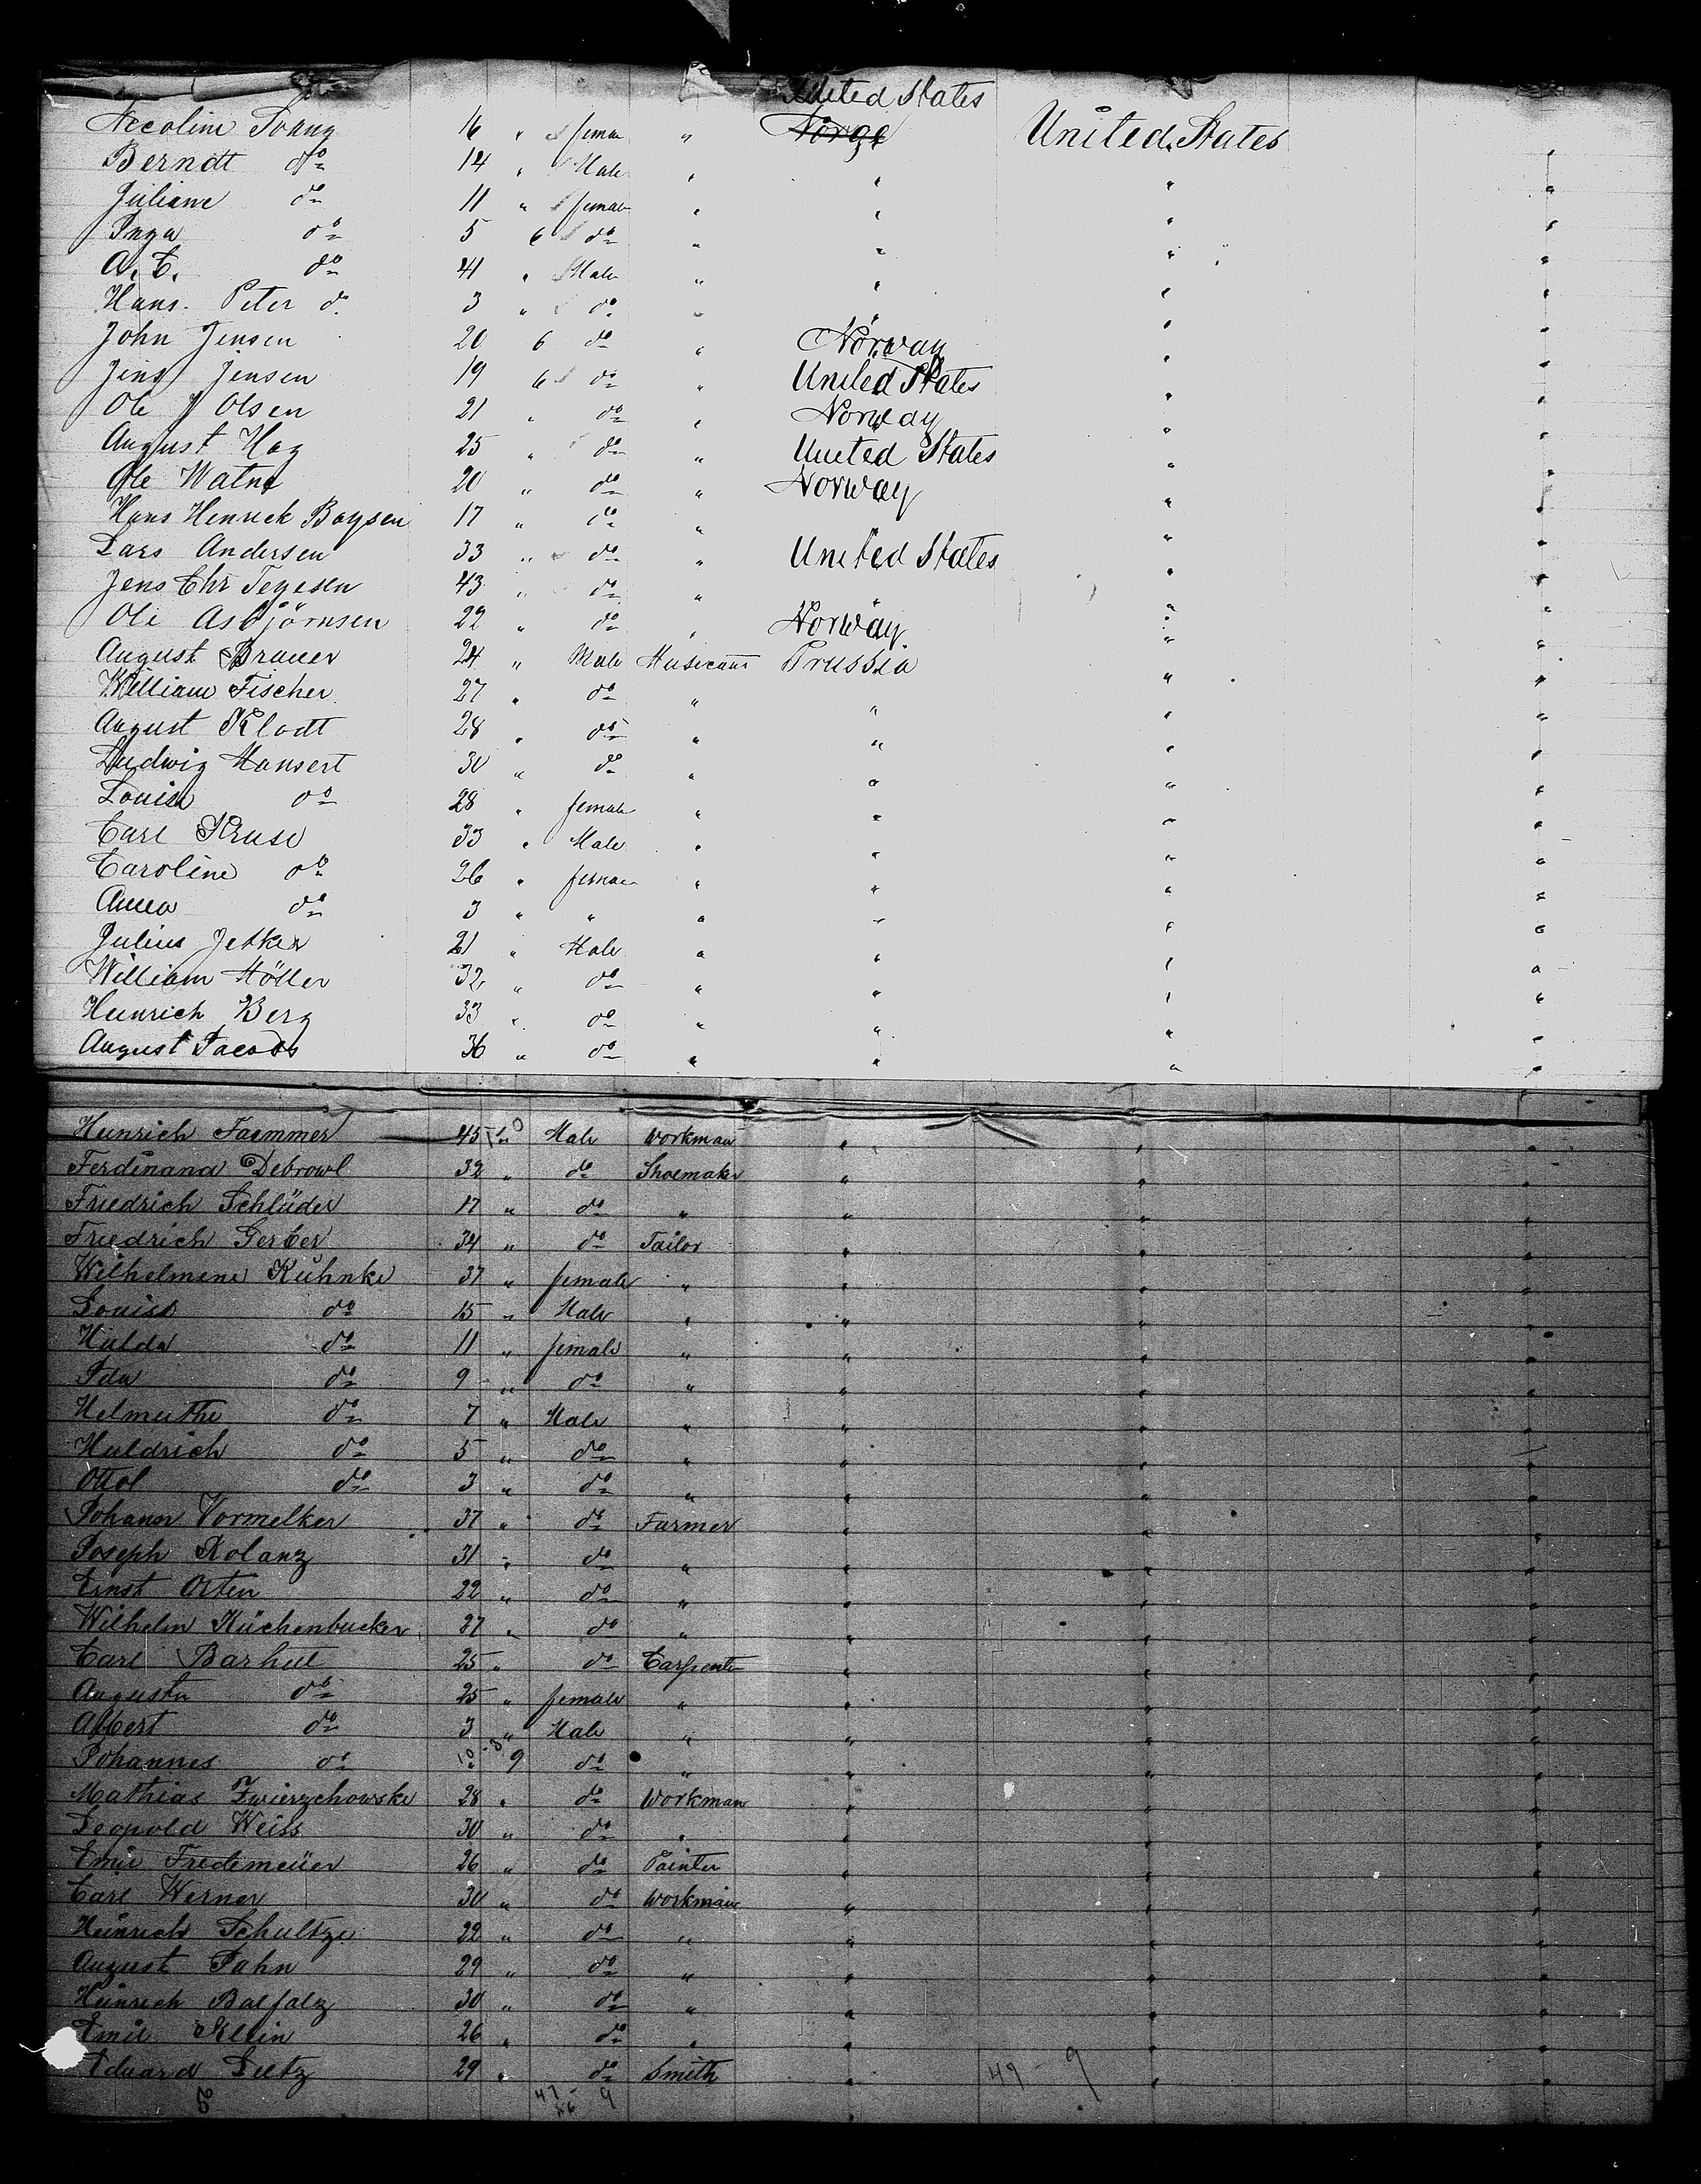 United States
Necoline Young 16 " femm " Norge United States "
Berndt do 14 " Male " " " "
Juliane do 11 " female " " " "
Inga do 5 6 do " " " "
A. C. do 41 " Male " " " "
Hans. Peter do 3 " do " " " "
John Jensen 20 6 do " Norway " "
Jens Jensen 19 6 do " United States " "
Ole J Olsen 21 " do " Norway " "
August Hag 25 " do " United States " "
Ole Watne 20 " do " Norway " "
Hans Henrick Boysen 17 " do " " "
Lars Andersen 33 " do " United States " "
Jens Chr Tegesen 43 " do " " " "
Ole Asbjörnsen 22 " do " Norway " "
August Brauer 24 " Male Musicant Prussia " "
William Fischer 27 " do " " " "
August Klodt 28 " do " " " "
Ludwig Mansert 30 " do " " " "
Louise do 28 " female " " " "
Carl Kruse 33 " Male " " " "
Caroline do 26 " female " " " "
Anna do 3 " " " " " "
Julius Jetker 21 " Male " " " "
William Möller 32 " do " " " "
Heinrich Berg 33 " do " " " "
August Jacobs 36 " do " " " "
Heinrich Jaemmer 45 " Male Workman " " "
Ferdinand Debrowl 32 " do Shoemaker " " "
Friedrich Schlüder 17 " do " " " "
Friedrich Gerber 34 " do Tailor " " "
Wilhelmine Kühnke 37 " female " " " "
Louise do 15 " Male " " " "
Hulda do 11 " female " " " "
Ida do 9 " do " " " "
Helmuthe do 7 " Male " " " "
Huldrich do 5 " do " " " "
Ottol do 3 " do " " " "
Johann Vormelker 37 " do Farmer " " "
Joseph Kolanz 31 " do " " " "
Ernst Orten 22 " do " " " "
Wilhelm Küchenbucker 27 " do " " " "
Carl Barhul 25 " do Carpenter " " "
Augusta do 25 " female " " " "
Albert do 3 " Male " " " "
Johannes do " 9 do " " " "
Mathias Zwierzchowske 28 " do Workman " " "
Leopold Weiss 30 " do " " " "
Emil Fredemeüer 26 " do Painter " " "
Carl Werner 30 " do Workman " " "
Heinrich Schultze 22 " do " " " "
August Jahn 29 " do " " " "
Heinrich Balfalz 30 " do " " " "
Emil Klein 26 " do " " " "
Eduard Lutz 29 " do Smith " 47 - 9 " "
47 - 9